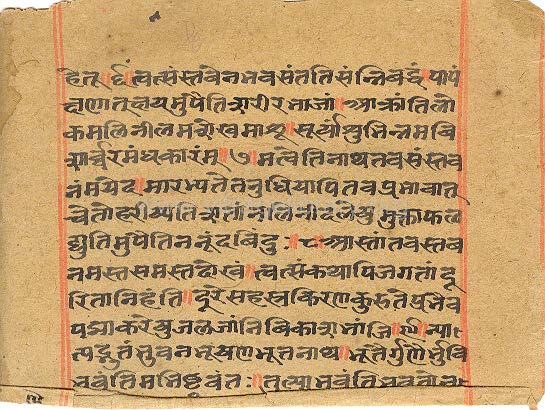 हेतु ॥६॥ त्वत्संस्तवेनभवसंततिसंन्निबद्धं ॥ पापं
क्षणात्क्षयमुपैतिशरीरभाजां ॥ आक्रांतिलो
कमलिनीलमशेखमाशू ॥ सूर्यांशुभिन्नमवि
शार्वरमंधकारंम् ॥ ७ ॥ मत्वेतिनाथतवसंस्तव
नंमयेद ॥ मारभ्यतेतनुधियापितवप्रभावात्
चेतोहरीष्यतिशतांनलिनीदलेषु मुक्ताफल
द्युतिमुपैतिननूंदबिंदु ॥ः८॥ आस्तांतवस्तव
नमस्तसमस्तदोखं ॥ त्वत्संकथापिजगतांदू
रितानिहंति ॥ दूरेसहस्रकिरणकुरुतेप्रभैव
पद्माकरेषुजलजांनिविकाशभांजि ॥९॥ नात्य
त्यद्भुतंभुवनभूषणभूतनाथ ॥ भूतैर्गुणैर्भुवि
भवंतमभिष्टुवंतः ॥ तुल्याभवंतिभवतोन